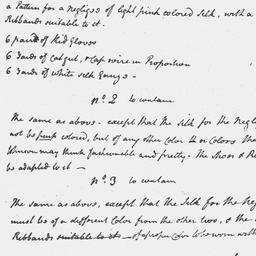 a Pattern for a Negligs of light pink colored silk, with a
Ribbands suitable to it.
6 pair of Kid Gloves
6 Yards of Catgut, & Cap wire in Proportion
6 Yards of white silk
No. 2 to contain
The same as above. except that the silk for the Negli
not be pink colored, but of any other color or colors tha
may think fashionable and pretty. The Shoes & R
be adapted to it —
No. 3 to contain
The same as above, except that the silk for the Neg
must be of a different Color from the other two, & the
Ribbands suitable to it — of a proper color to be worn with